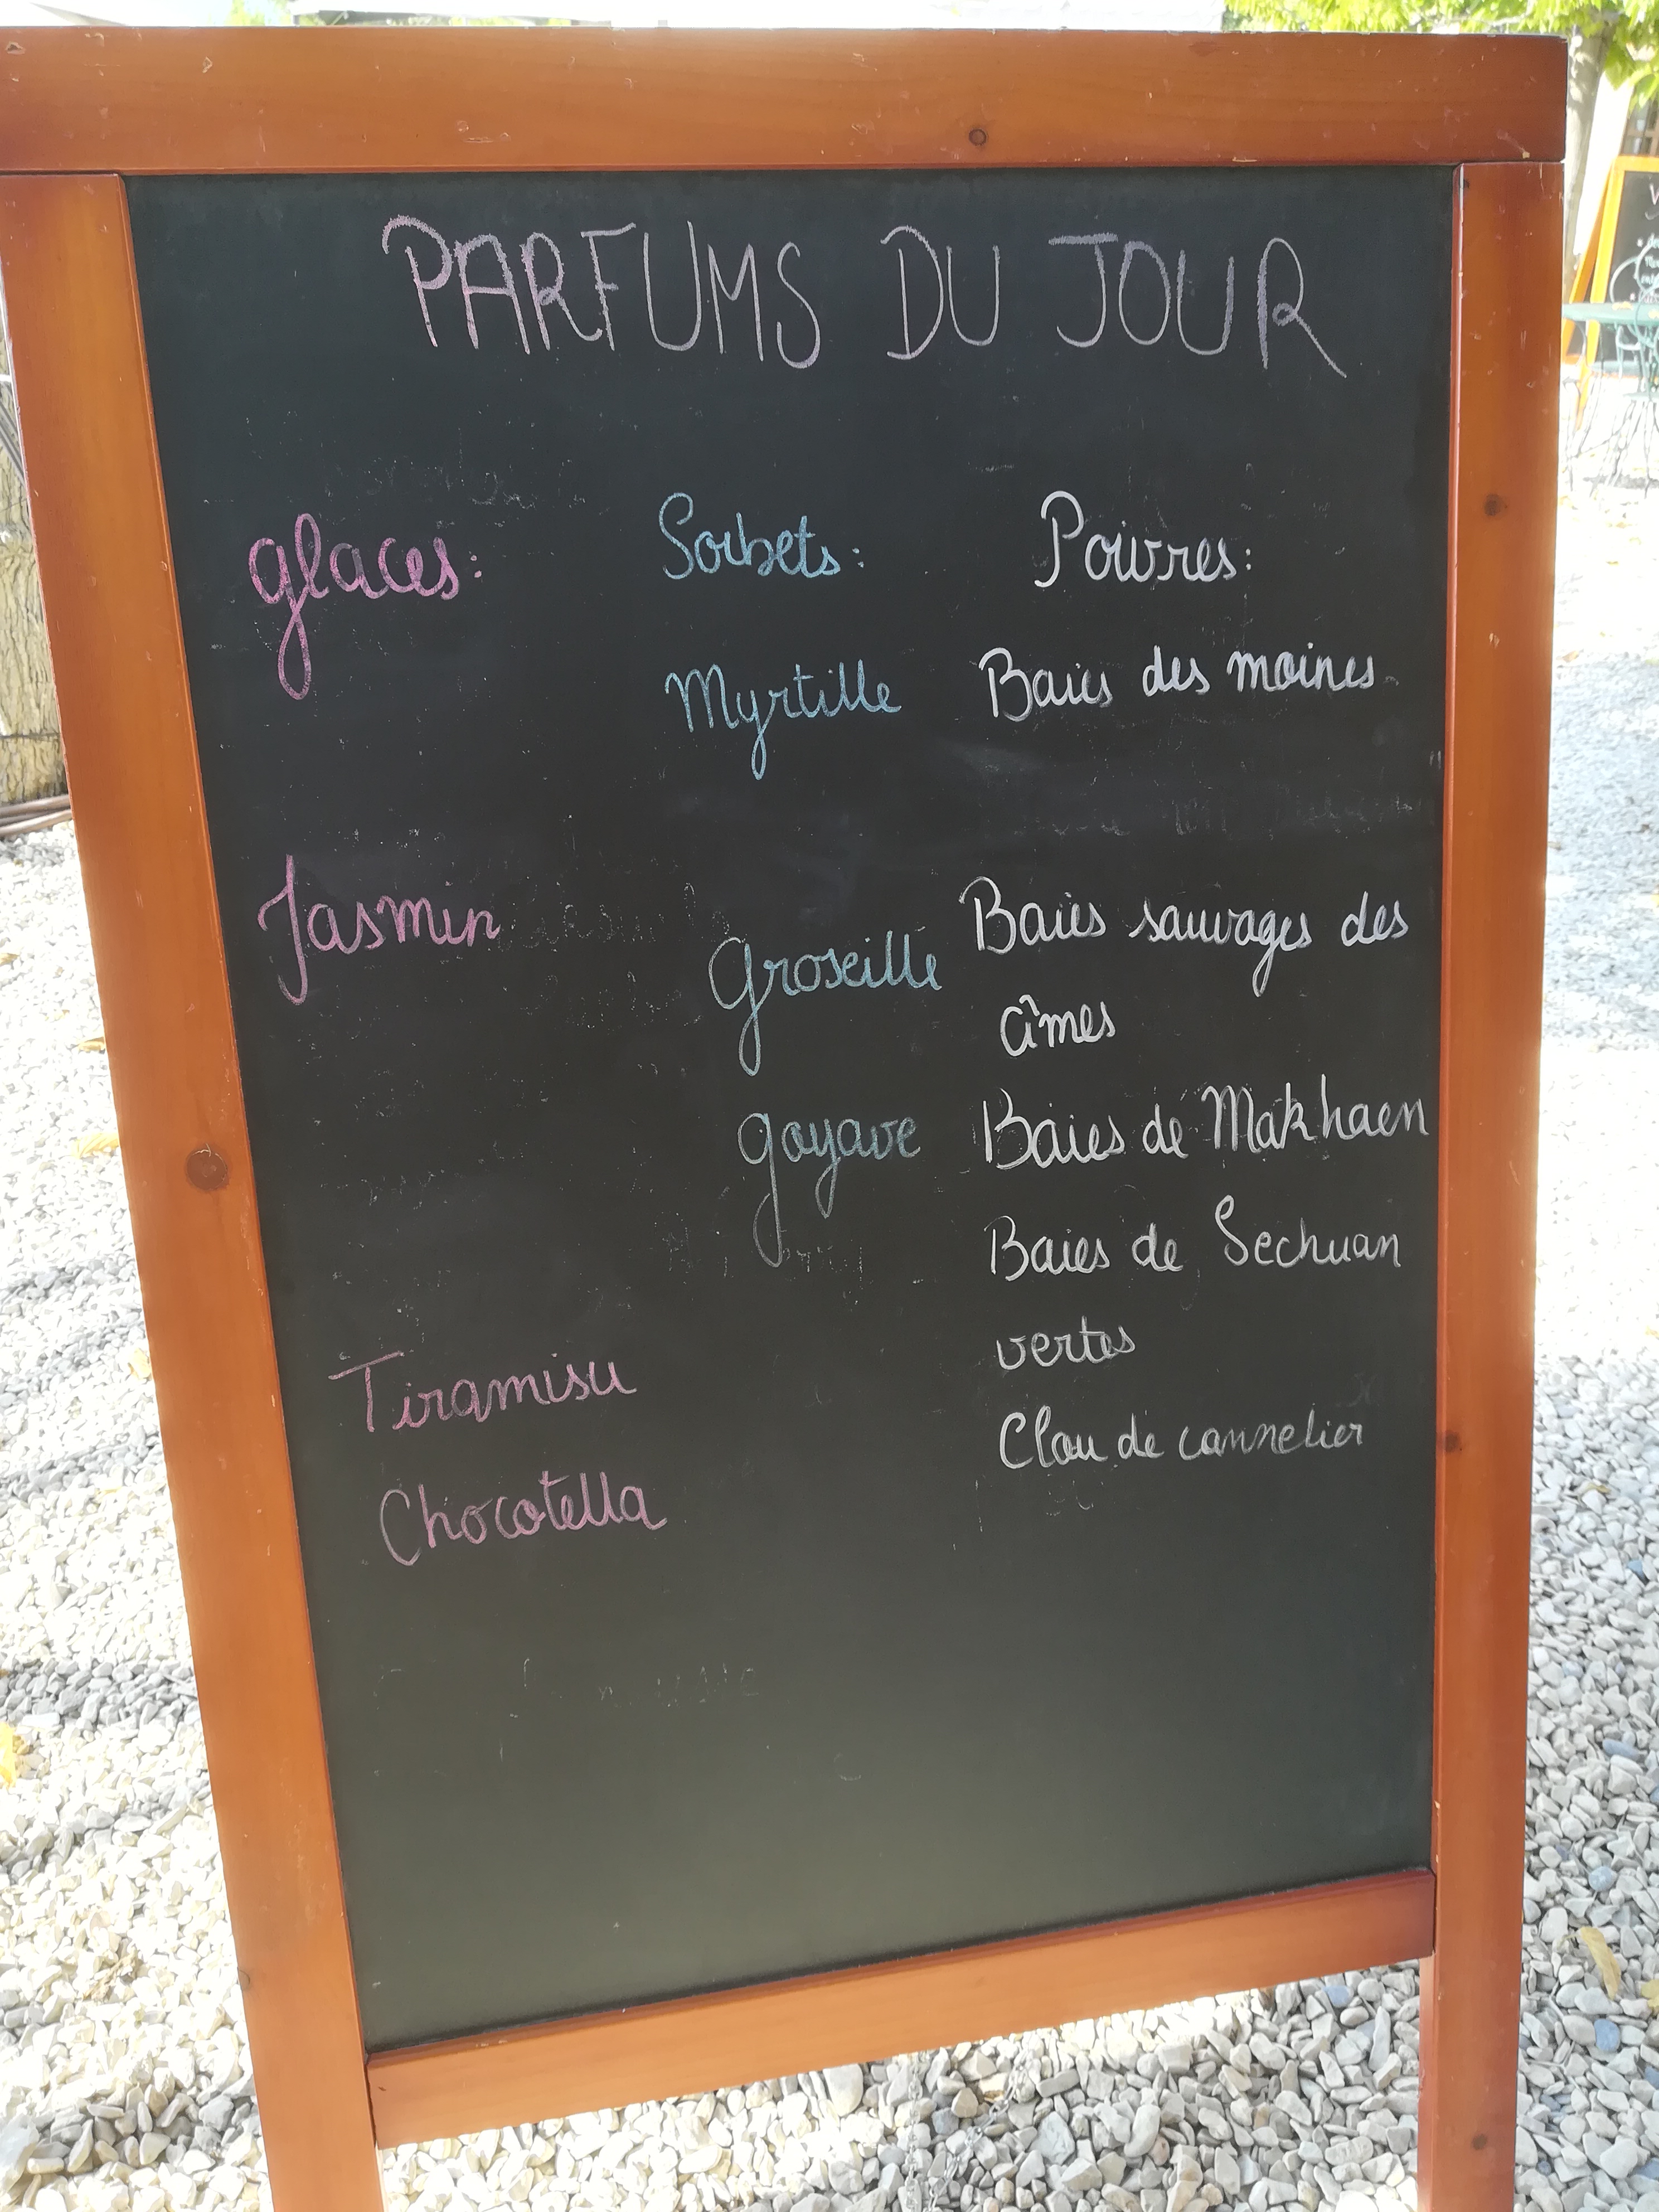 PARFUMS DU JOUR
glaces:
Jasmin
Tiramisu
Chocotella
Sorbets:
Myrtille
groseille
goyave
Poivres:
Baies des moines
Baies sauvages des
cîmes
Baies de Makhaen
Baies de Sechuan
vertes
Clou de cannelier